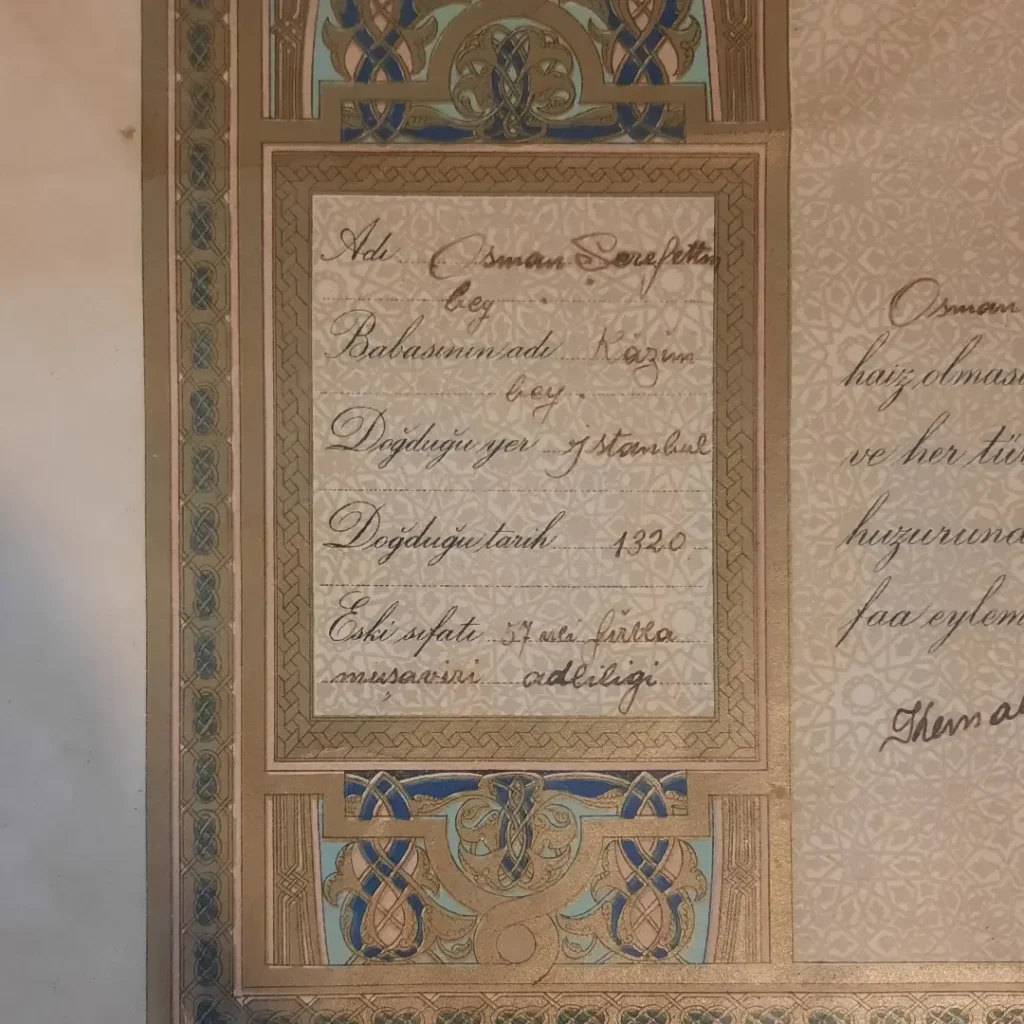 Adı Osman Şerefettin
bey
Babasının adı Kâzım
bey.
Doğduğu yer İstanbul
Doğduğu tarih 1320
Eski sıfatı 57 fırka
muşaviri adliliği
Osman
haiz olması
ve her tür
huzurund
faa eylem